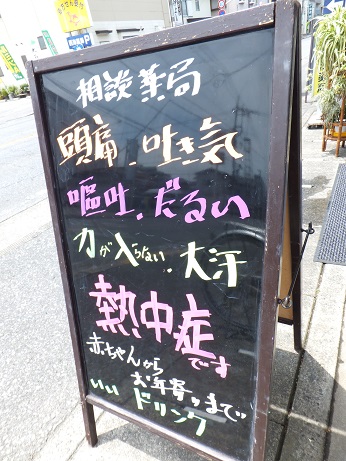 相談薬局
頭痛、吐き気
嘔吐、だるい
力が入らない、大汗
熱中症です
赤ちゃんから
お年寄りまで
いい ドリンク